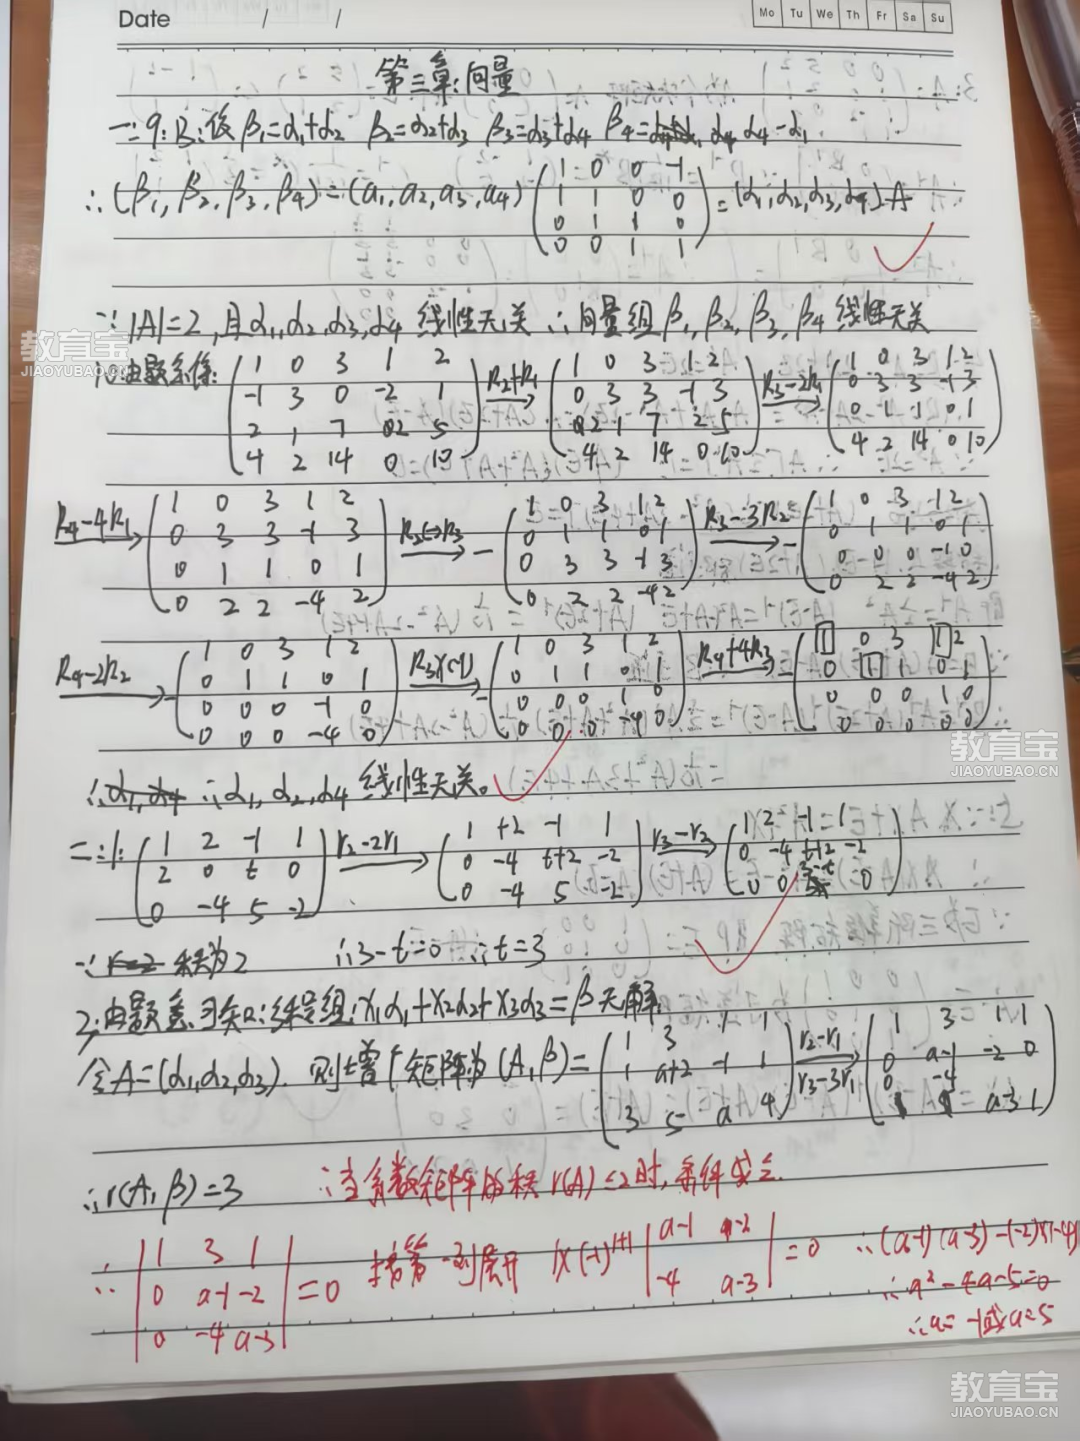 Date / /
Mo Tu We Th Fr Sa Su
第三章:向量
一:9:B:设 β1=α1+α2 β2=α2+α3 β3=α3+α4 β4=α4-α1
∴(β1,β2,β3,β4)=(α1,α2,α3,α4)
1 0 0 -1
1 1 0 0
0 1 1 0
0 0 1 1
=(α1,α2,α3,α4)A
∵|A|=2,且α1,α2,α3,α4 线性无关 ∴向量组β1,β2,β3,β4 线性无关
教育宝
JIAOYUBAO.CN
10:由题条件:
1 0 3 1 2
-1 3 0 -2 1
2 1 7 2 5
4 2 14 0 10
R2+R1
1 0 3 1 2
0 3 3 -1 3
2 1 7 2 5
4 2 14 0 10
R3-2R1
1 0 3 1 2
0 3 3 -1 3
0 1 1 0 1
4 2 14 0 10
R4-4R1
1 0 3 1 2
0 3 3 -1 3
0 1 1 0 1
0 2 2 -4 2
R2↔R3
-
1 0 3 1 2
0 1 1 0 1
0 3 3 -1 3
0 2 2 -4 2
R3-3R2
-
1 0 3 1 2
0 1 1 0 1
0 0 0 -1 0
0 2 2 -4 2
R4-2R2
-
1 0 3 1 2
0 1 1 0 1
0 0 0 -1 0
0 0 0 -4 0
R3×(-1)
-
1 0 3 1 2
0 1 1 0 1
0 0 0 1 0
0 0 0 -4 0
R4+4R3
-
1 0 3 1 2
0 1 1 0 1
0 0 0 1 0
0 0 0 0 0
教育宝
JIAOYUBAO.CN
∴α1,α4 ∴α1,α2,α4 线性无关。
二:1:
1 2 -1 1
2 0 t 0
0 -4 5 -2
r2-2r1
1 +2 -1 1
0 -4 t+2 -2
0 -4 5 -2
r3-r2
1 2 -1 1
0 -4 t+2 -2
0 0 3-t 0
∵ r=2 秩为2 ∴3-t=0 ∴t=3
2:由题意可知:线性方程组:x1α1+x2α2+x3α3=β无解
令A=(α1,α2,α3).则增广矩阵为(A,β)=
1 3 1 1
1 a+2 -1 1
3 5 a 4
r2-r1
r3-3r1
1 3 1 1
0 a-1 -2 0
0 -4 a-3 1
∴r(A,β)=3 ∴当系数矩阵的秩 r(A)≤2时,条件成立.
∴
1 3 1
0 a-1 -2
0 -4 a-3
=0 按第一列展开 1×(-1)^{1+1}
a-1 a-2
-4 a-3
=0 ∴(a-1)(a-3)-(-2)×(-4)
∴a²-4a-5=0
∴a=-1或a=5
教育宝
JIAOYUBAO.CN